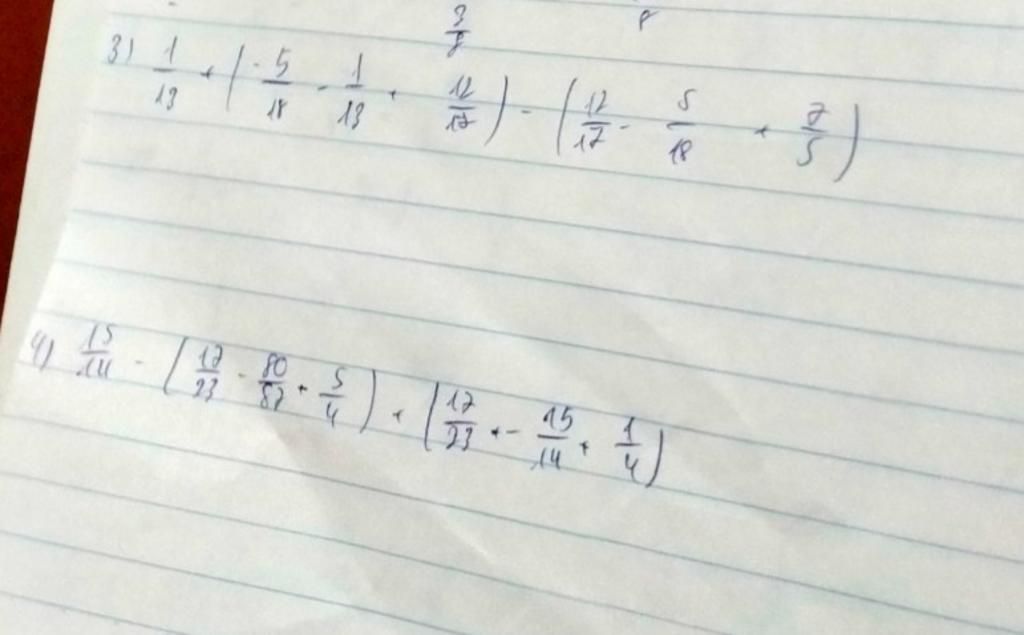 3/8
3) 1/13 + (-5/18 - 1/13 + 12/17) - (12/17 - 5/18 + 7/5)
4) 15/14 - (17/23 - 80/87 + 5/4) + (17/23 + - 15/14 + 1/4)